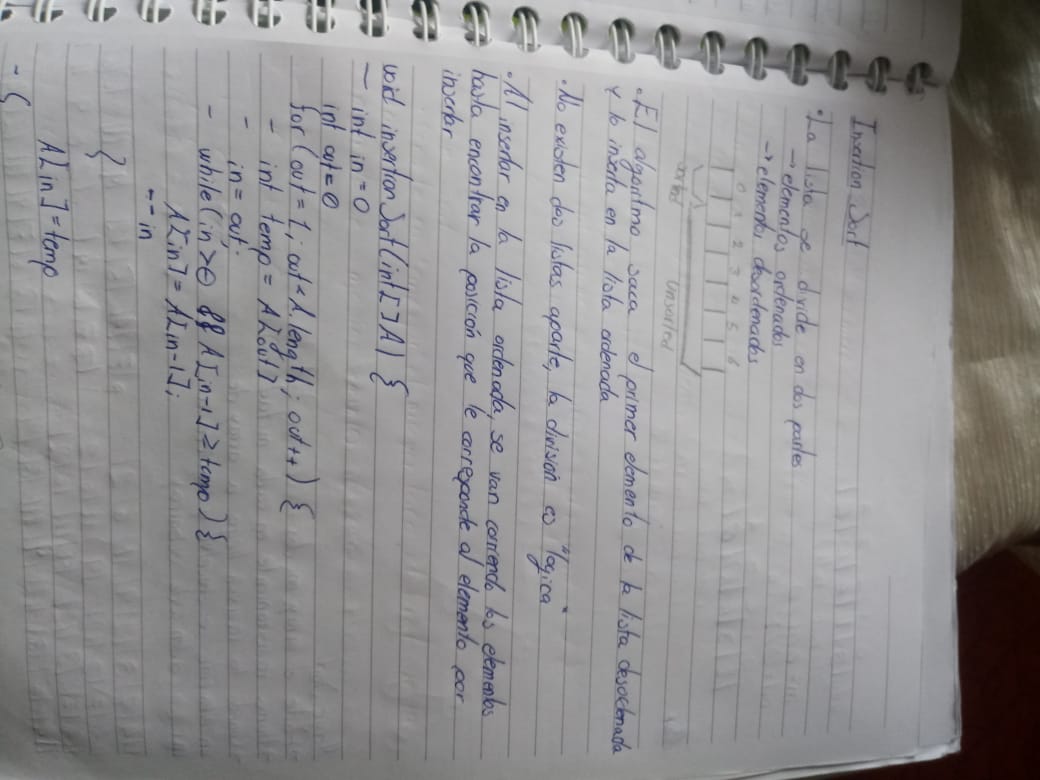 Insertion Sort
• La lista se divide en dos partes
→ elementos ordenados
→ elementos desordenados
0 1 2 3 4 5 6
sorted unsorted
• El algoritmo saca el primer elemento de la lista desordenada
y lo inserta en la lista ordenada
• No existen dos listas aparte, la división es "logica"
• Al insertar en la lista ordenada, se van corriendo los elementos
hasta encontrar la posición que le corresponde al elemento por
insertar
void insertionSort(int[] A) {
- int in = 0
int out = 0
for (out = 1; out < A.length; out++) {
- int temp = A[out]
- in = out;
- while (in > 0 && A[in-1] ≥ temp) {
A[in] = A[in-1];
--in
}
A[in] = temp
- {